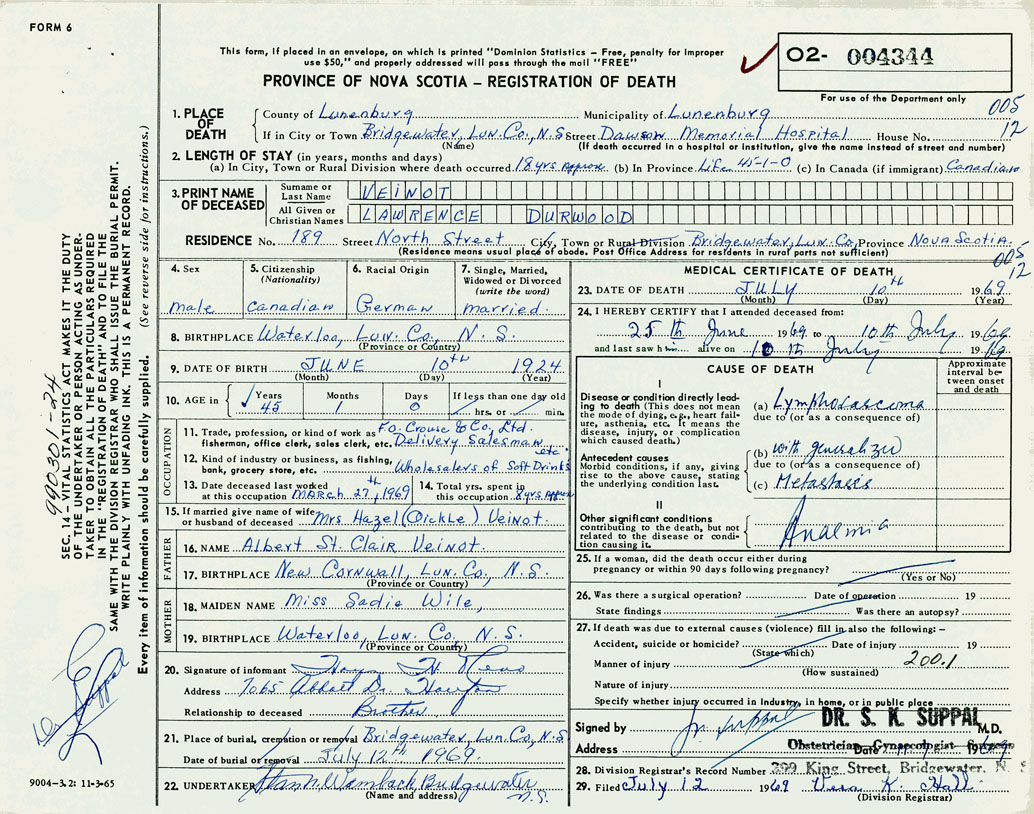 FORM 6
This form, if placed in an envelope, on which is printed "Dominion Statistics – Free, penalty for Improper
use $50," and properly addressed will pass through the mail "FREE"
PROVINCE OF NOVA SCOTIA – REGISTRATION OF DEATH
O2- 004344
For use of the Department only
005
12
1. PLACE OF DEATH
County of Lunenburg Municipality of Lunenburg
If in City or Town Bridgewater, Lun. Co., N.S. Street Dawson Memorial Hospital House No.
(Name) (If death occurred in a hospital or institution, give the name instead of street and number)
2. LENGTH OF STAY (in years, months and days)
(a) In City, Town or Rural Division where death occurred 18 yrs approx (b) In Province Life 45-1-0 (c) In Canada (if immigrant) Canadian
3. PRINT NAME OF DECEASED
Surname or Last Name VEINOT
All Given or Christian Names LAWRENCE DURWOOD
RESIDENCE No. 189 Street North Street City, Town or Rural Division Bridgewater, Lun. Co. Province Nova Scotia.
(Residence means usual place of abode. Post Office Address for residents in rural parts not sufficient)
005
12
4. Sex
male
5. Citizenship
(Nationality)
Canadian
6. Racial Origin
German
7. Single, Married,
Widowed or Divorced
(write the word)
married.
8. BIRTHPLACE Waterloo, Lun. Co., N. S.
(Province or Country)
9. DATE OF BIRTH JUNE 10th 1924
(Month) (Day) (Year)
10. AGE in Years 45 Months 1 Days 0 If less than one day old hrs. or min.
OCCUPATION
11. Trade, profession, or kind of work as
fisherman, office clerk, sales clerk, etc. Fo. Crouse & Co, Ltd. Delivery Salesman etc.
12. Kind of industry or business, as fishing,
bank, grocery store, etc. Wholesalers of Soft Drinks
13. Date deceased last worked
at this occupation MARCH 27th, 1969
14. Total yrs. spent in
this occupation 8 yrs approx
15. If married give name of wife
or husband of deceased Mrs Hazel (Oickle) Veinot.
FATHER
16. NAME Albert St. Clair Veinot.
17. BIRTHPLACE New Cornwall, Lun. Co., N. S.
(Province or Country)
MOTHER
18. MAIDEN NAME Miss Sadie Wile,
19. BIRTHPLACE Waterloo, Lun. Co, N. S.
(Province or Country)
20. Signature of informant
Address 7065 Abbott Dr.
Relationship to deceased Brother.
21. Place of burial, cremation or removal Bridgewater, Lun. Co., N.S
Date of burial or removal July 12th 1969.
22. UNDERTAKER Bridgewater
N.S.
(Name and address)
MEDICAL CERTIFICATE OF DEATH
23. DATE OF DEATH JULY 10th 1969.
(Month) (Day) (Year)
24. I HEREBY CERTIFY that I attended deceased from:
25 th June 1969 to 10th July 1969
and last saw him alive on 10 th July 1969
CAUSE OF DEATH
Approximate
interval be-
tween onset
and death
I
Disease or condition directly lead-
ing to death (This does not mean
the mode of dying, e.g., heart fail-
ure, asthenia, etc. It means the
disease, injury, or complication
which caused death.)
(a) Lymphosarcoma
due to (or as a consequence of)
Antecedent causes
Morbid conditions, if any, giving
rise to the above cause, stating
the underlying condition last.
(b) with generalized
due to (or as a consequence of)
(c) Metastasis
II
Other significant conditions
contributing to the death, but not
related to the disease or condi-
tion causing it.
Anaemia
25. If a woman, did the death occur either during
pregnancy or within 90 days following pregnancy?
(Yes or No)
26. Was there a surgical operation? Date of operation 19
State findings Was there an autopsy?
27. If death was due to external causes (violence) fill in also the following: –
Accident, suicide or homicide? Date of injury 19
(State which)
Manner of injury 200.1
(How sustained)
Nature of injury
Specify whether injury occurred in Industry, in home, or in public place
Signed by M.D.
DR. S. K. SUPPAL
Address Date 1969
Obstetrician Gynaecologist Surgeon
28. Division Registrar's Record Number
299 King Street, Bridgewater, N. S.
29. Filed July 12 1969 Vera K. Hall
(Division Registrar)
990301-24
SEC. 14 – VITAL STATISTICS ACT MAKES IT THE DUTY
OF THE UNDERTAKER OR PERSON ACTING AS UNDER-
TAKER TO OBTAIN ALL THE PARTICULARS REQUIRED
IN THE "REGISTRATION OF DEATH" AND TO FILE THE
SAME WITH THE DIVISION REGISTRAR WHO SHALL ISSUE THE BURIAL PERMIT.
WRITE PLAINLY WITH UNFADING INK. THIS IS A PERMANENT RECORD.
Every item of information should be carefully supplied. (See reverse side for instructions.)
9004–3.2: 11-3-65